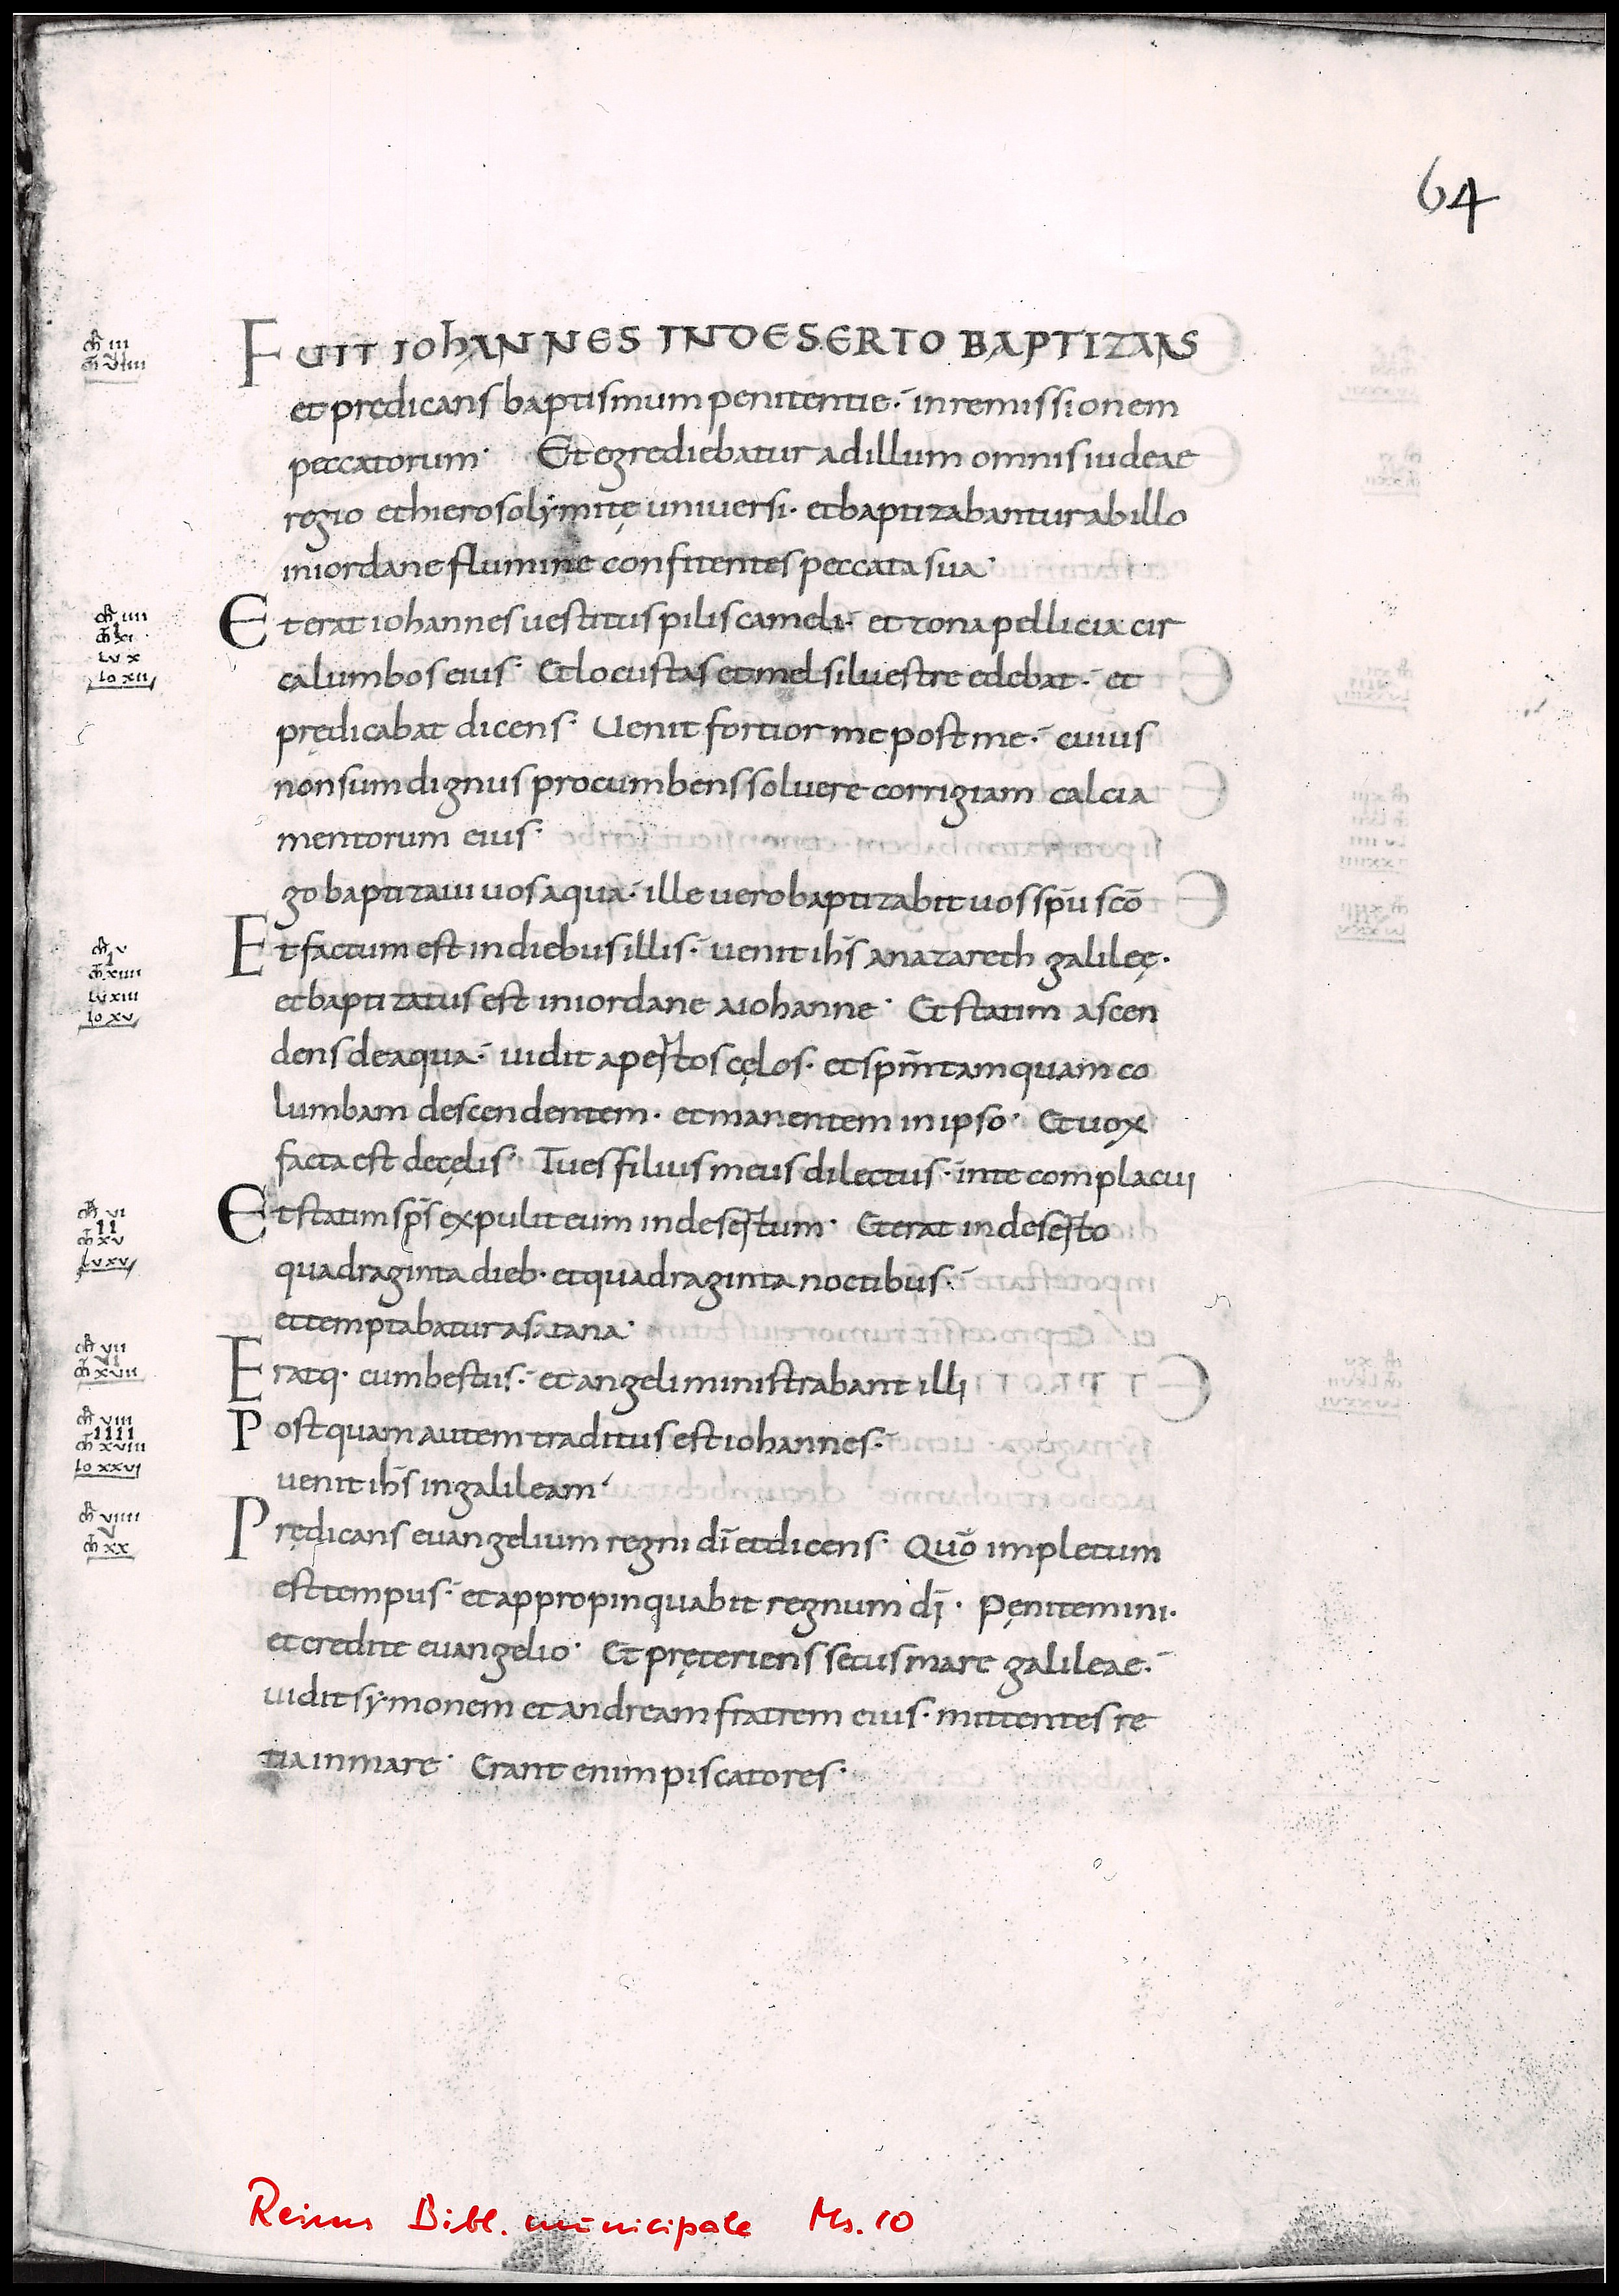 64
FUIT IOhANNES INDESERTO BAPTIZANS
et predicans baptismum penitentie. in remissionem
peccatorum. Et egrediebatur ad illum omnis iudeae
regio et hierosolymitę universi. et baptizabantur ab illo
in iordane flumine confitentes peccata sua.
Et erat iohannes vestitus pilis cameli. et zona pellicia cir
ca lumbos eius. Et locustas et mel silvestre edebat. et
prędicabat dicens. Venit fortior me post me. cuius
non sum dignus procumbens solvere corrigiam calcia
mentorum eius.
go baptizavi vos aqua. ille vero baptizabit vos spū scō
Et factum est in diebus illis. venit ih̄s a nazareth galileę.
et baptizatus est in iordane a iohanne. Et statim ascen
dens de aqua. vidit apertos cęlos. et spm̄ tamquam co
lumbam descendentem. et manentem in ipso. Et vox
facta est de cęlis. Tu es filius meus dilectus. in te complacui
Et statim sps̄ expulit eum in desertum. Et erat in deserto
quadraginta dieb. et quadraginta noctibus.
et temptabatur a satana.
Eratq. cum bestiis. et angeli ministrabant illi
Postquam autem traditus est iohannes.
venit ih̄s in galileam.
Prędicans evangelium regni dī et dicens. Quō impletum
est tempus. et appropinquabit regnum dī. Pęnitemini.
et credite evangelio. Et pręteriens secus mare galileae.
vidit symonem et andream fratrem eius. mittentes re
tia in mare. Erant enim piscatores.
III
IIII
LV X
IO XII
V
XIIII
LV XIII
IO XV
VI
II
XV
LV XV
VII
VI
XVII
VIII
IIII
XVIII
IO XXVI
VIIII
V
XX
Reims Bibl. municipale Ms. 10